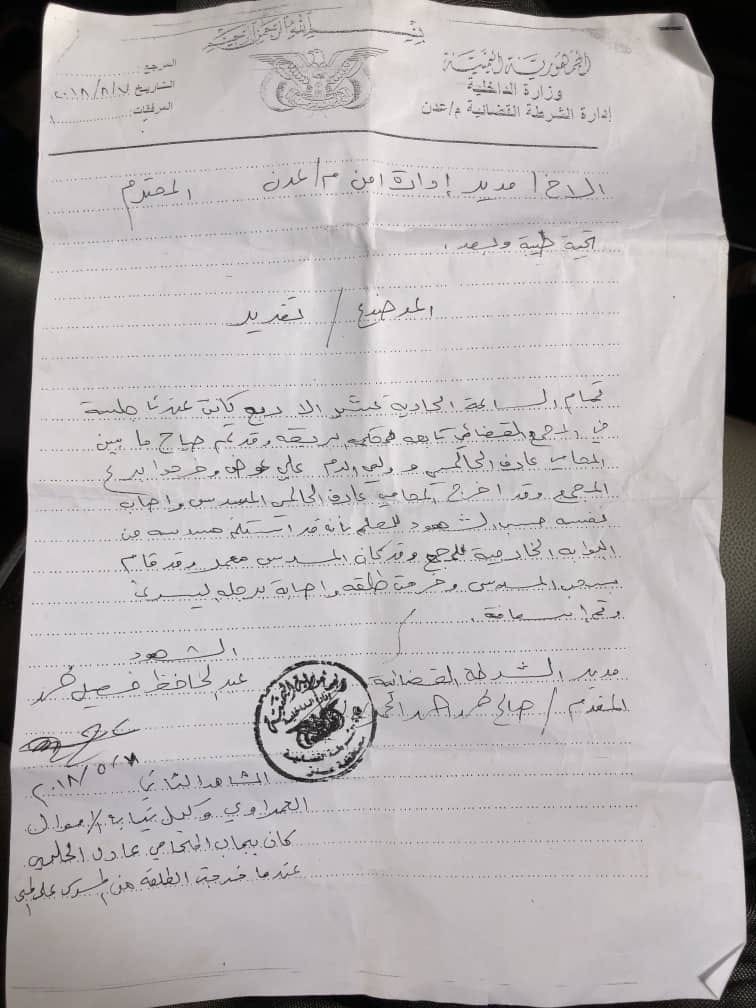 بسم الله الرحمن الرحيم
الجمهورية اليمنية
وزارة الداخلية
إدارة الشرطة القضائية م/عدن
المرجع:
التاريخ ٢٠١٨/٨/٧
المرفقات: ١
الاخ / مدير إدارة امن م/ عدن المحترم
تحية طيبة وبعد،
الموضوع / تقرير
تمام الساعة الحادية عشر الا ربع كانت عندنا جلسة
في المجمع القضائي تابعه لمحكمه بريقه وقد تم صياح ما بين
المحامي عارف الحالمي و ولي الدم علي عوض وخرجوا برع
المجمع وقد اخرج المحامي عارف الحالمي المسدس واصابه
نفسه حسب الشهود للعلم بأنه قد استلم مسدسه من
البوابه الخارجية للمجمع وقد كان المسدس معمر وقد قام
بسحب المسدس وخرجت طلقه واصابة برجله ليسرئ
وتم إسعافة.
الشهود
مدير الشرطة القضائية
عبدالحافظ فيصل
المقدم / صالح محمد احمد
المشاهد الثاني
العمراوي وكيل نيابة اموال
كان بجاب المحامي عادل الحلمي
عندما خرجت الطلقة من المسدس على